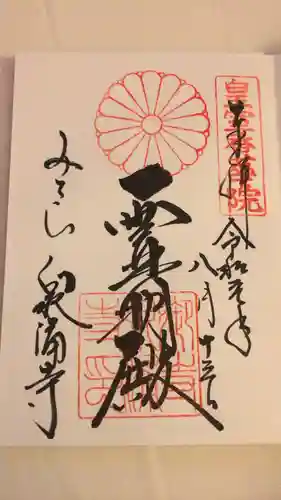 奉拝
令和元年
八月十三日
皇室香華院
霊明殿
みてら
泉涌寺